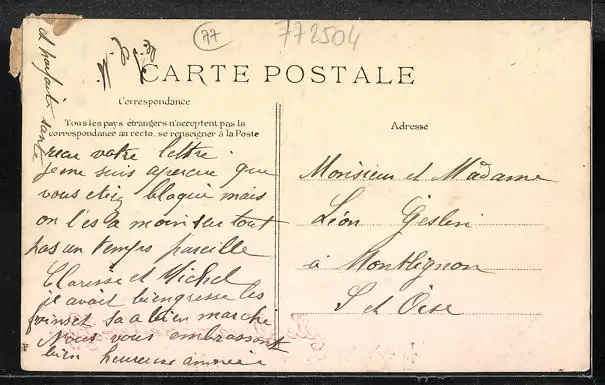 77
772504
CARTE POSTALE
Correspondance
Tous les pays étrangers n'acceptent pas la
correspondance au recto. se renseigner à la Poste
Adresse
et parfaite santé
recu votre lettre.
je me suis apercue que
vous etiez bloqué mais
on l'es a moin sur tout
pas un temps pareille
Clarisse et Michel
je avait bien gresse les
sa a bien marche
Nous vous embrassont
bien heureuse année
Monsieur et Madame
Léon Geslin
à Montlignon
S et Oise